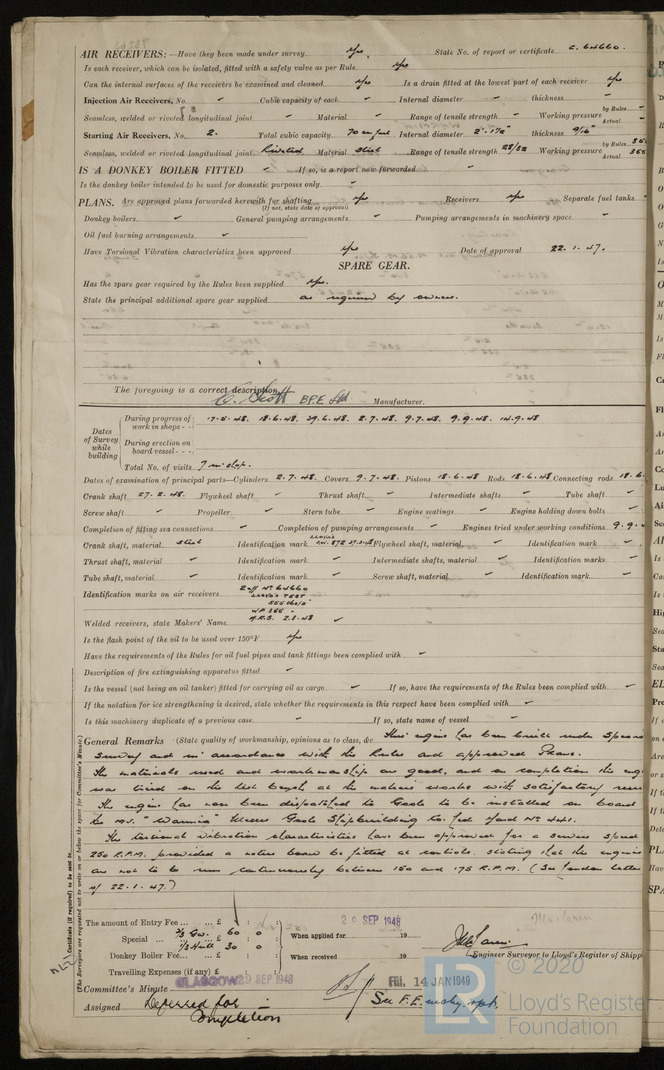 AIR RECEIVERS:—Have they been made under survey yes State No. of report or certificate C. 64660.
Is each receiver, which can be isolated, fitted with a safety valve as per Rule yes
Can the internal surfaces of the receivers be examined and cleaned yes Is a drain fitted at the lowest part of each receiver yes
Injection Air Receivers, No. Cubic capacity of each Internal diameter thickness
Seamless, welded or riveted longitudinal joint Material Range of tensile strength Working pressure by Rules Actual
Starting Air Receivers, No. 2. Total cubic capacity 70 Internal diameter thickness 9/16"
Seamless, welded or riveted longitudinal joint Riveted Material Steel Range of tensile strength 28/32 Working pressure by Rules Actual
IS A DONKEY BOILER FITTED If so, is a report now forwarded
Is the donkey boiler intended to be used for domestic purposes only
PLANS. Are approved plans forwarded herewith for shafting yes Receivers yes Separate fuel tanks
(If not, state date of approval)
Donkey boilers General pumping arrangements Pumping arrangements in machinery space
Oil fuel burning arrangements
Have Torsional Vibration characteristics been approved yes Date of approval 22.1.47.
SPARE GEAR.
Has the spare gear required by the Rules been supplied yes.
State the principal additional spare gear supplied as required by owners.
The foregoing is a correct description,
C. Scott B.P.E Ltd Manufacturer.
Dates of Survey while building
During progress of work in shops - - 17.5.48. 18.6.48. 29.6.48. 2.7.48. 9.7.48. 9.9.48. 14.9.48
During erection on board vessel - - -
Total No. of visits 7 in shop.
Dates of examination of principal parts—Cylinders 2.7.48. Covers 9.7.48. Pistons 18.6.48 Rods 18.6.48 Connecting rods 18.6.
Crank shaft 27.2.48. Flywheel shaft Thrust shaft Intermediate shafts Tube shaft
Screw shaft Propeller Stern tube Engine seatings Engine holding down bolts
Completion of fitting sea connections Completion of pumping arrangements Engines tried under working conditions 9.9.
Crank shaft, material Steel Identification mark LLOYD'S Flywheel shaft, material, Identification mark
Thrust shaft, material Identification mark Intermediate shafts, material Identification marks
Tube shaft, material Identification mark Screw shaft, material Identification mark
Identification marks on air receivers No 64660
LLOYD'S TEST
W.P. 355
2.8.48
Welded receivers, state Makers' Name
Is the flash point of the oil to be used over 150°F yes
Have the requirements of the Rules for oil fuel pipes and tank fittings been complied with
Description of fire extinguishing apparatus fitted
Is the vessel (not being an oil tanker) fitted for carrying oil as cargo If so, have the requirements of the Rules been complied with
If the notation for ice strengthening is desired, state whether the requirements in this respect have been complied with
Is this machinery duplicate of a previous case If so, state name of vessel
General Remarks (State quality of workmanship, opinions as to class, &c. This engine has been built under Special
Survey and in accordance with the Rules and approved Plans.
The materials used and workmanship are good, and on completion the eng
was tried on the test bench at the makers works with satisfactory
The engine has now been dispatched to Goole to be installed on board
the M.V. "Wannia" Messrs Goole Shipbuilding Co. Ltd Yard No 441.
The torsional vibration characteristics have been approved for a service speed
250 R.P.M. provided a notice board be fitted at controls stating that the engines
are not to be run continuously between 150 and 175 R.P.M. (See London letter
of 22.1.47.)
(The Surveyors are requested not to write on or below the space for Committee's Minute.)
Certificate (if required) to be sent to
The amount of Entry Fee ... £ : :
Special ... £ 60 : 0 :
30 : 0
Donkey Boiler Fee... ... £ : :
Travelling Expenses (if any) £ : :
When applied for 19
When received 19
29 SEP 1948
Engineer Surveyor to Lloyd's Register of Shipp
Committee's Minute GLASGOW 29 SEP 1948
FRI. 14 JAN 1949
Assigned Deferred for
Completion
See F.E. mchy. rpt.
© 2020
LR
Lloyd's Register
Foundation